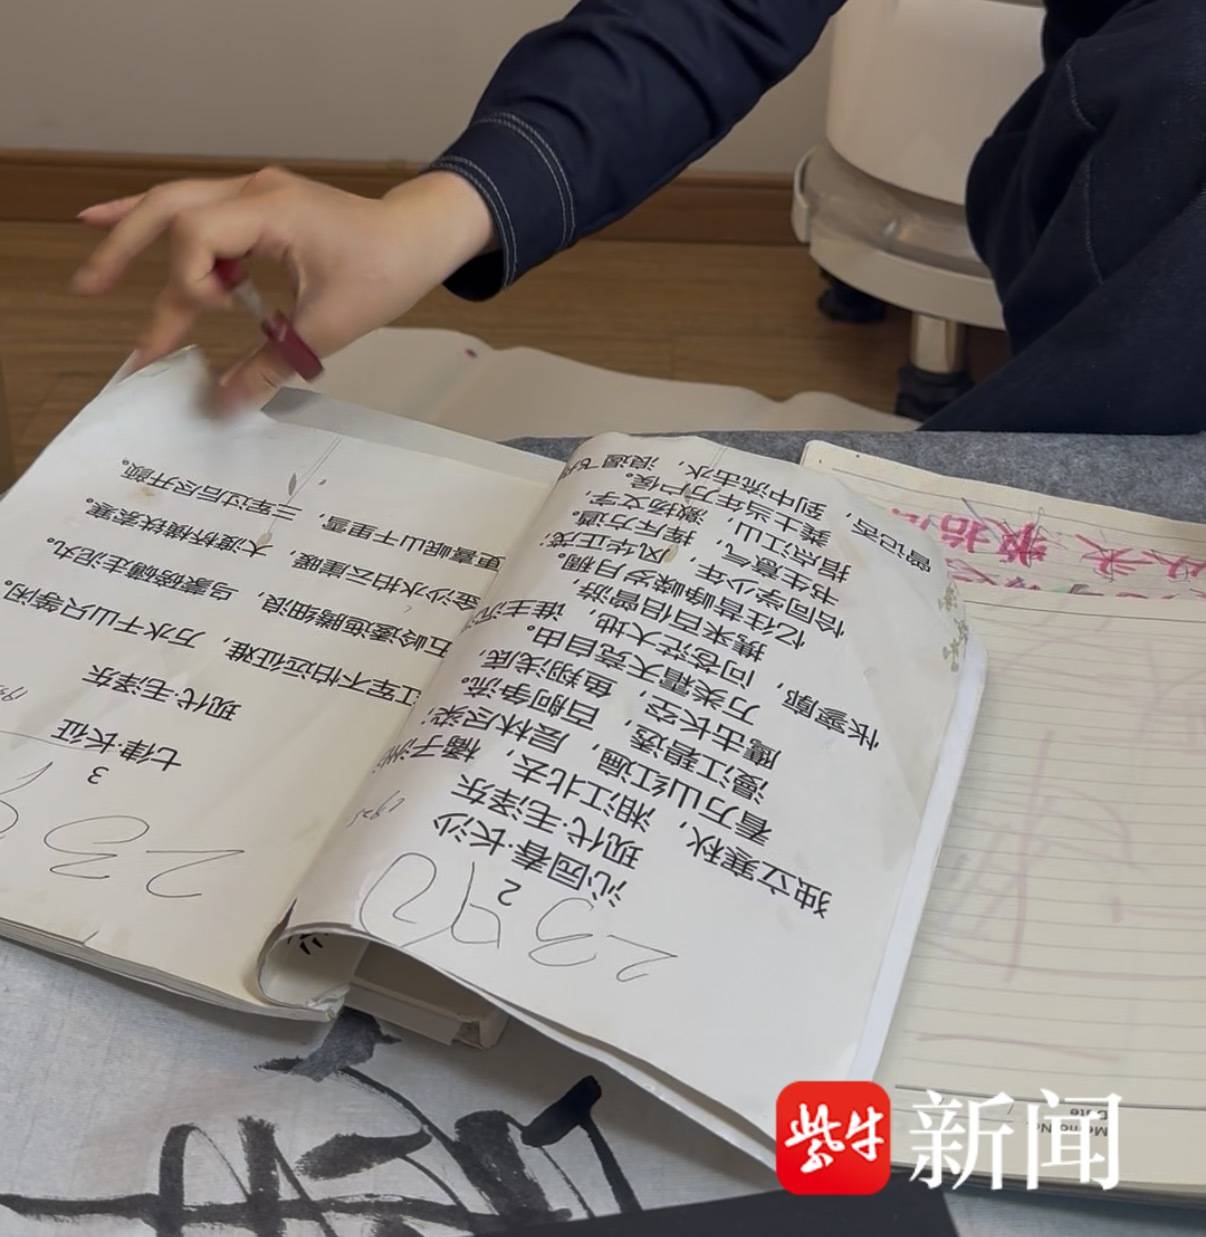 2
沁园春·长沙
现代·毛泽东
1925
独立寒秋，湘江北去，橘子洲
看万山红遍，层林尽染；
漫江碧透，百舸争流。
鹰击长空，鱼翔浅底，
万类霜天竞自由。
怅寥廓，问苍茫大地，谁主沉
携来百侣曾游，
忆往昔峥嵘岁月稠。
恰同学少年，风华正茂；
书生意气，挥斥方遒。
指点江山，激扬文字，
粪土当年万户侯。
曾记否，到中流击水，浪遏飞
3
七律·长征
现代·毛泽东
红军不怕远征难，万水千山只等闲。
五岭逶迤腾细浪，乌蒙磅礴走泥丸。
金沙水拍云崖暖，大渡桥横铁索寒。
更喜岷山千里雪，三军过后尽开颜。
Memo No.
Date
紫牛
新闻